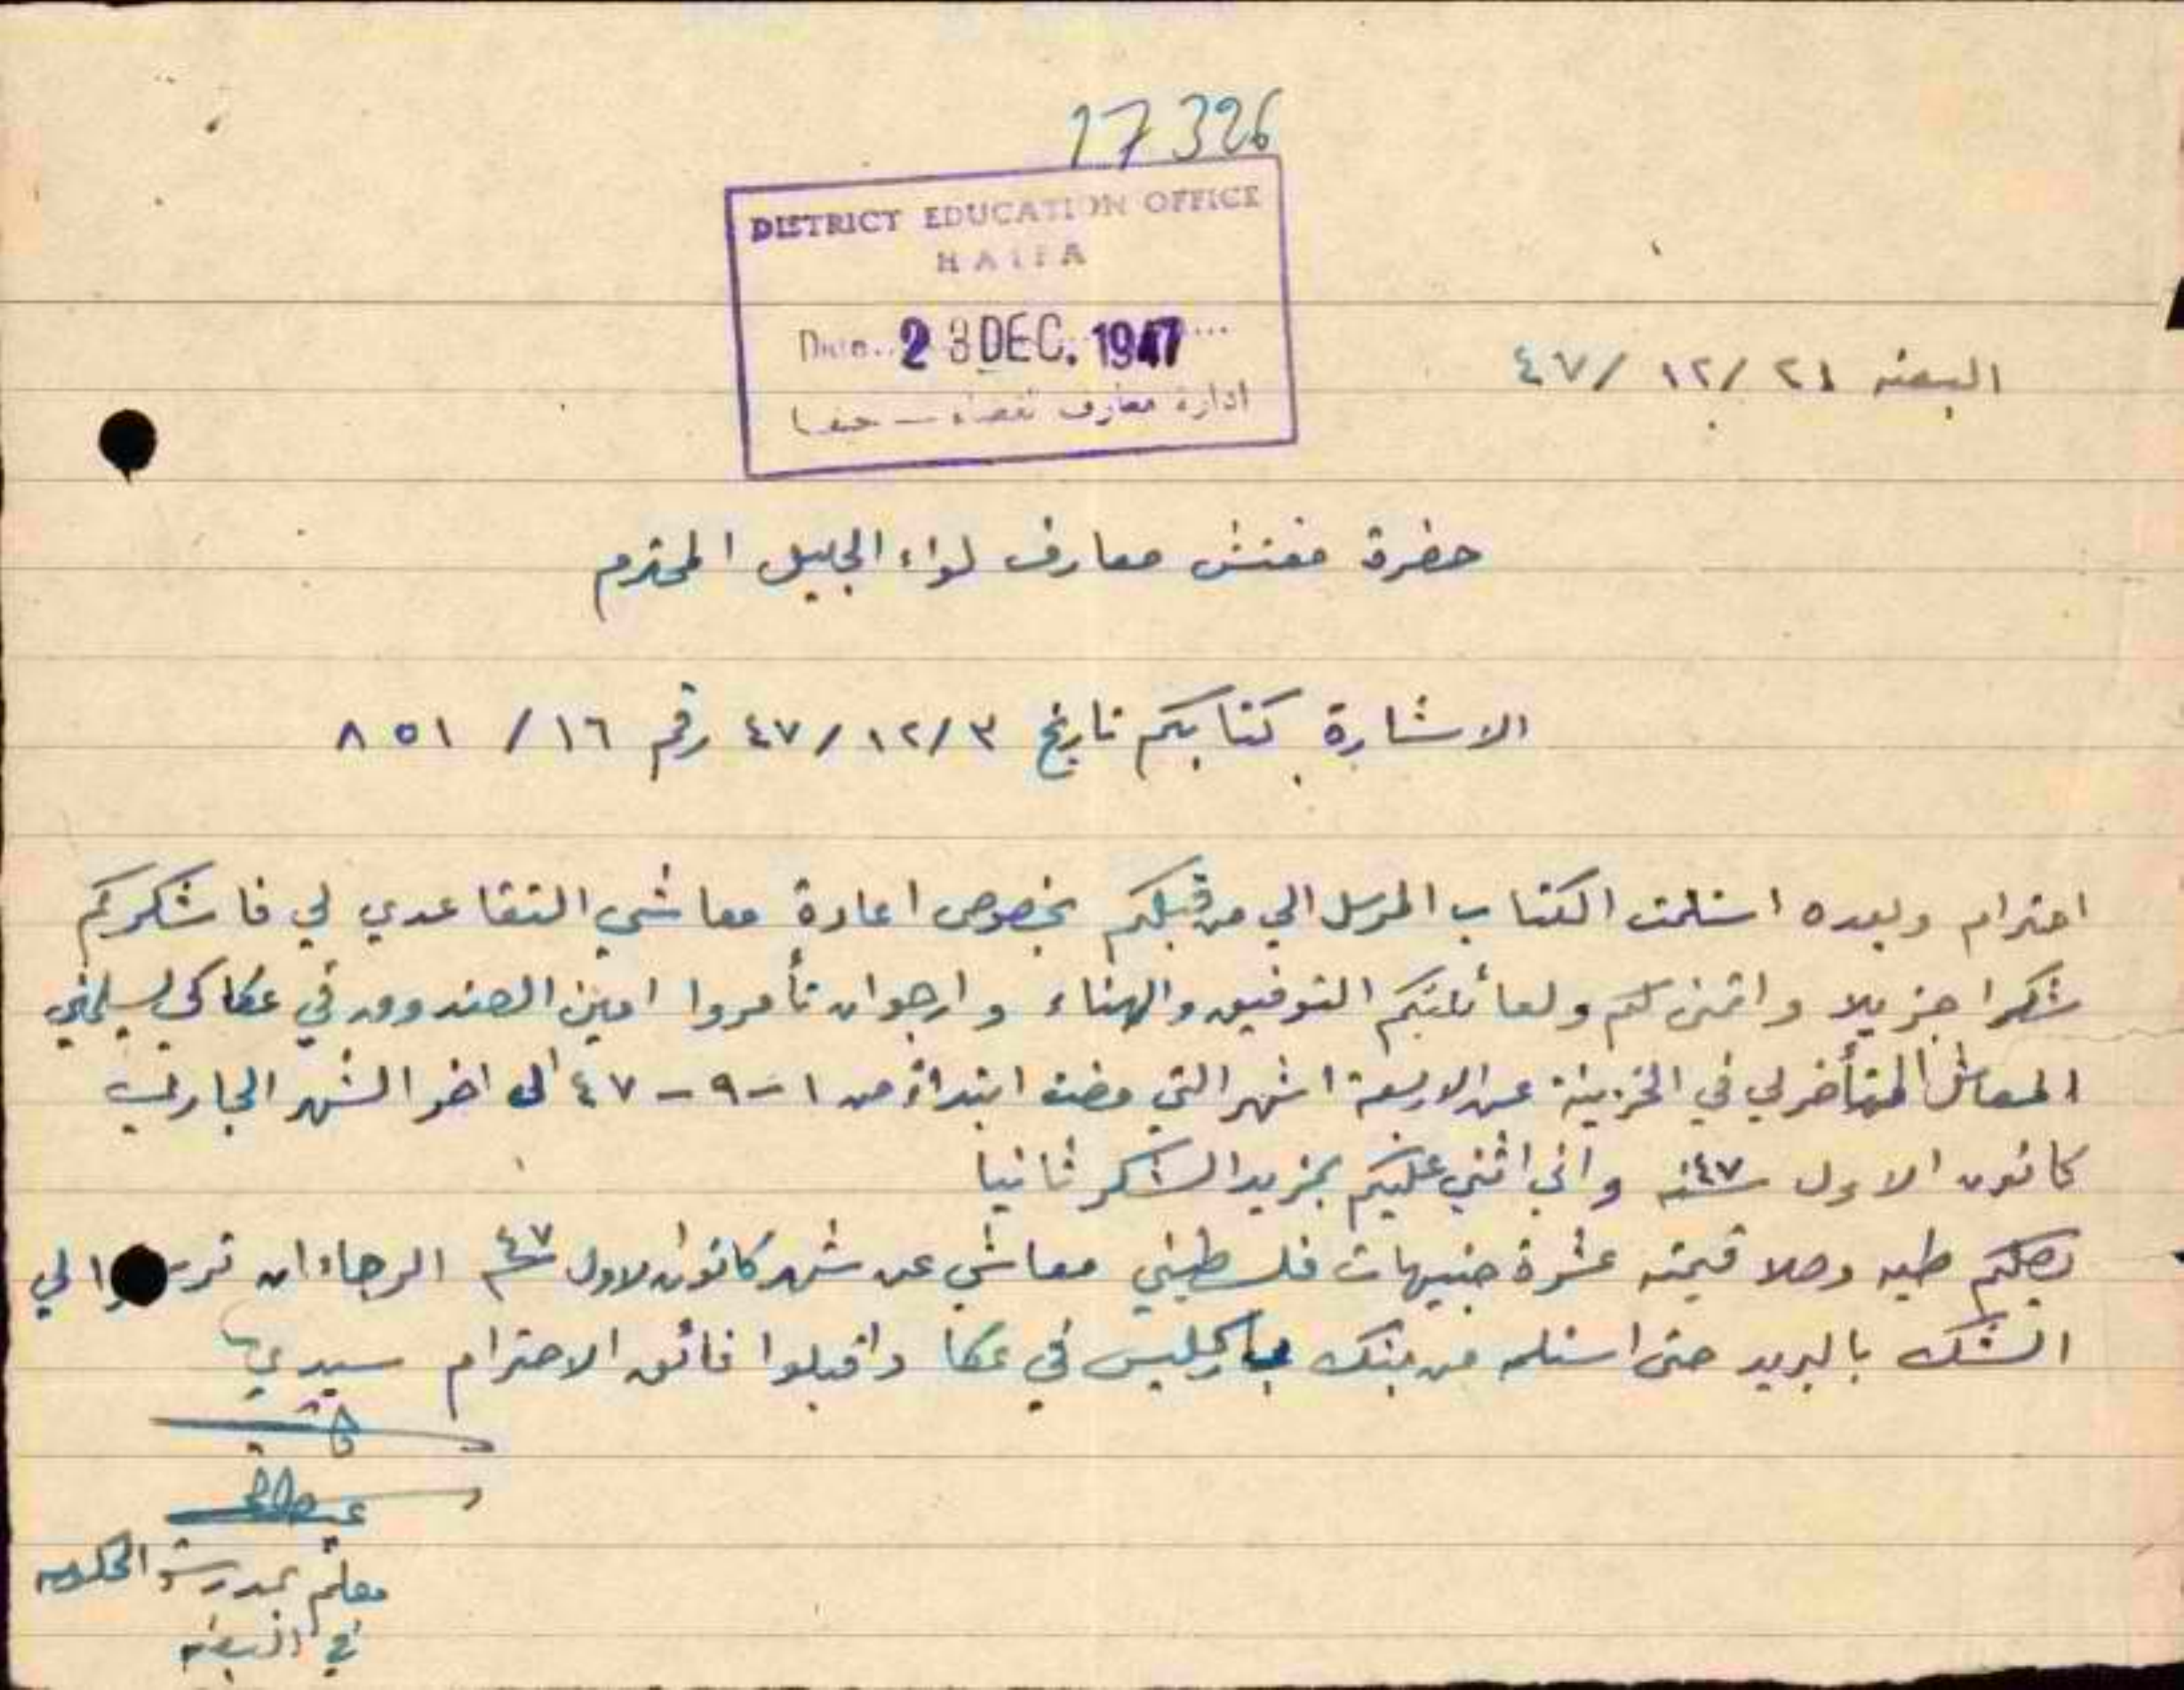 17326
DISTRICT EDUCATION OFFICE
HAIFA
Date.. 23 DEC. 1947...
ادارة معارف قضاء — حيفا
البعنه ٢١ /١٢ /٤٧
حضرة مفتش معارف لواء الجليل المحترم
الاشارة كتابكم تاريخ ٣ /١٢ /٤٧ رقم ١٦ / ٨٥١
احترام وبعده استلمت الكتاب المرسل الي من قبلكم بخصوص اعادة معاشي التقاعدي لي فاشكركم
شكرا جزيلا واتمنى لكم ولعائلتكم التوفيق والهناء وارجوان تأمروا امين الصندوق في عكا كي يسلمني
المعاش المتأخر لي في الخزينة عن الاربعة اشهر التي مضت ابتداءً من ١ - ٩ - ٤٧ الى اخر الشهر الجاري
كانون الاول سنة ٤٧ واني اثني عليكم بمزيد الشكر ثانيا
يصلكم طيه وصلا قيمته عشرة جنيهات فلسطيني معاشي عن شهر كانون الاول ٤٧ الرجاء ان ترسلوا لي
الشك بالبريد حتى استلمه من بنك باركليس في عكا واقبلوا فائق الاحترام سيدي
معلم بمدرسة الحكومه
في البعنه